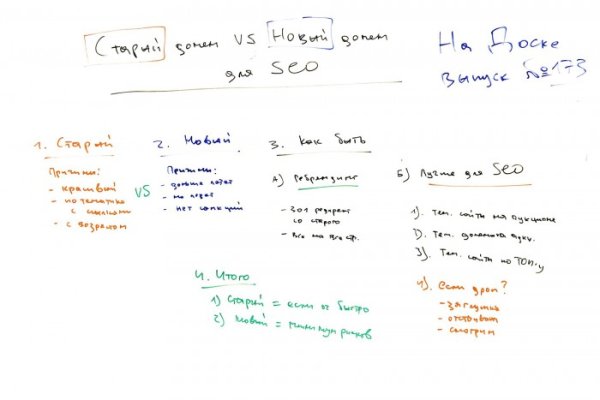 Старый домен VS Новый домен
для SEO
На Доске
выпуск №173
1. Старый
Причины:
- красивый
- по тематике
с ссылками
- с возрастом
VS
2. Новый
Причины:
- дольше
- не
- нет санкций
3. Как быть
А) Ребрендинг
- 301 редирект
со старого
- Все на все стр.
Б) Лучше для SEO
1). Тем. сайты на аукционе
2). Тем. домены аукц.
3). Тем. сайты по ТОП-у
4) если дроп?
- заглушка
- отстаиваем
- смотрим
4. Итого
1) Старый = если ог быстро
2) Новый = минимум рисков